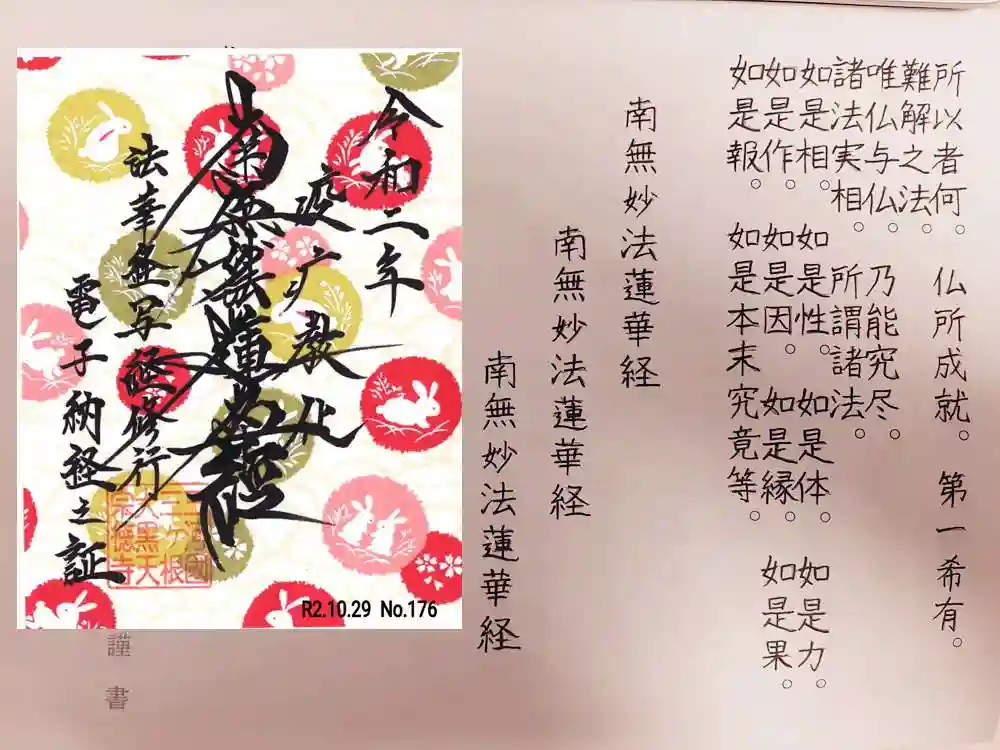 所以者何。仏所成就。第一希有。
難解之法。
唯仏与仏。乃能究尽。
諸法実相。所謂諸法。
如是相。如是性。如是体。如是力。
如是作。如是因。如是縁。如是果。
如是報。如是本末究竟等。
南無妙法蓮華経
南無妙法蓮華経
南無妙法蓮華経
令和二年
疫疒教化
南無妙法蓮華経
法華経写経修行
電子納経之証
三河國
三ヶ根
大黒天
R2.10.29 No.176
謹書